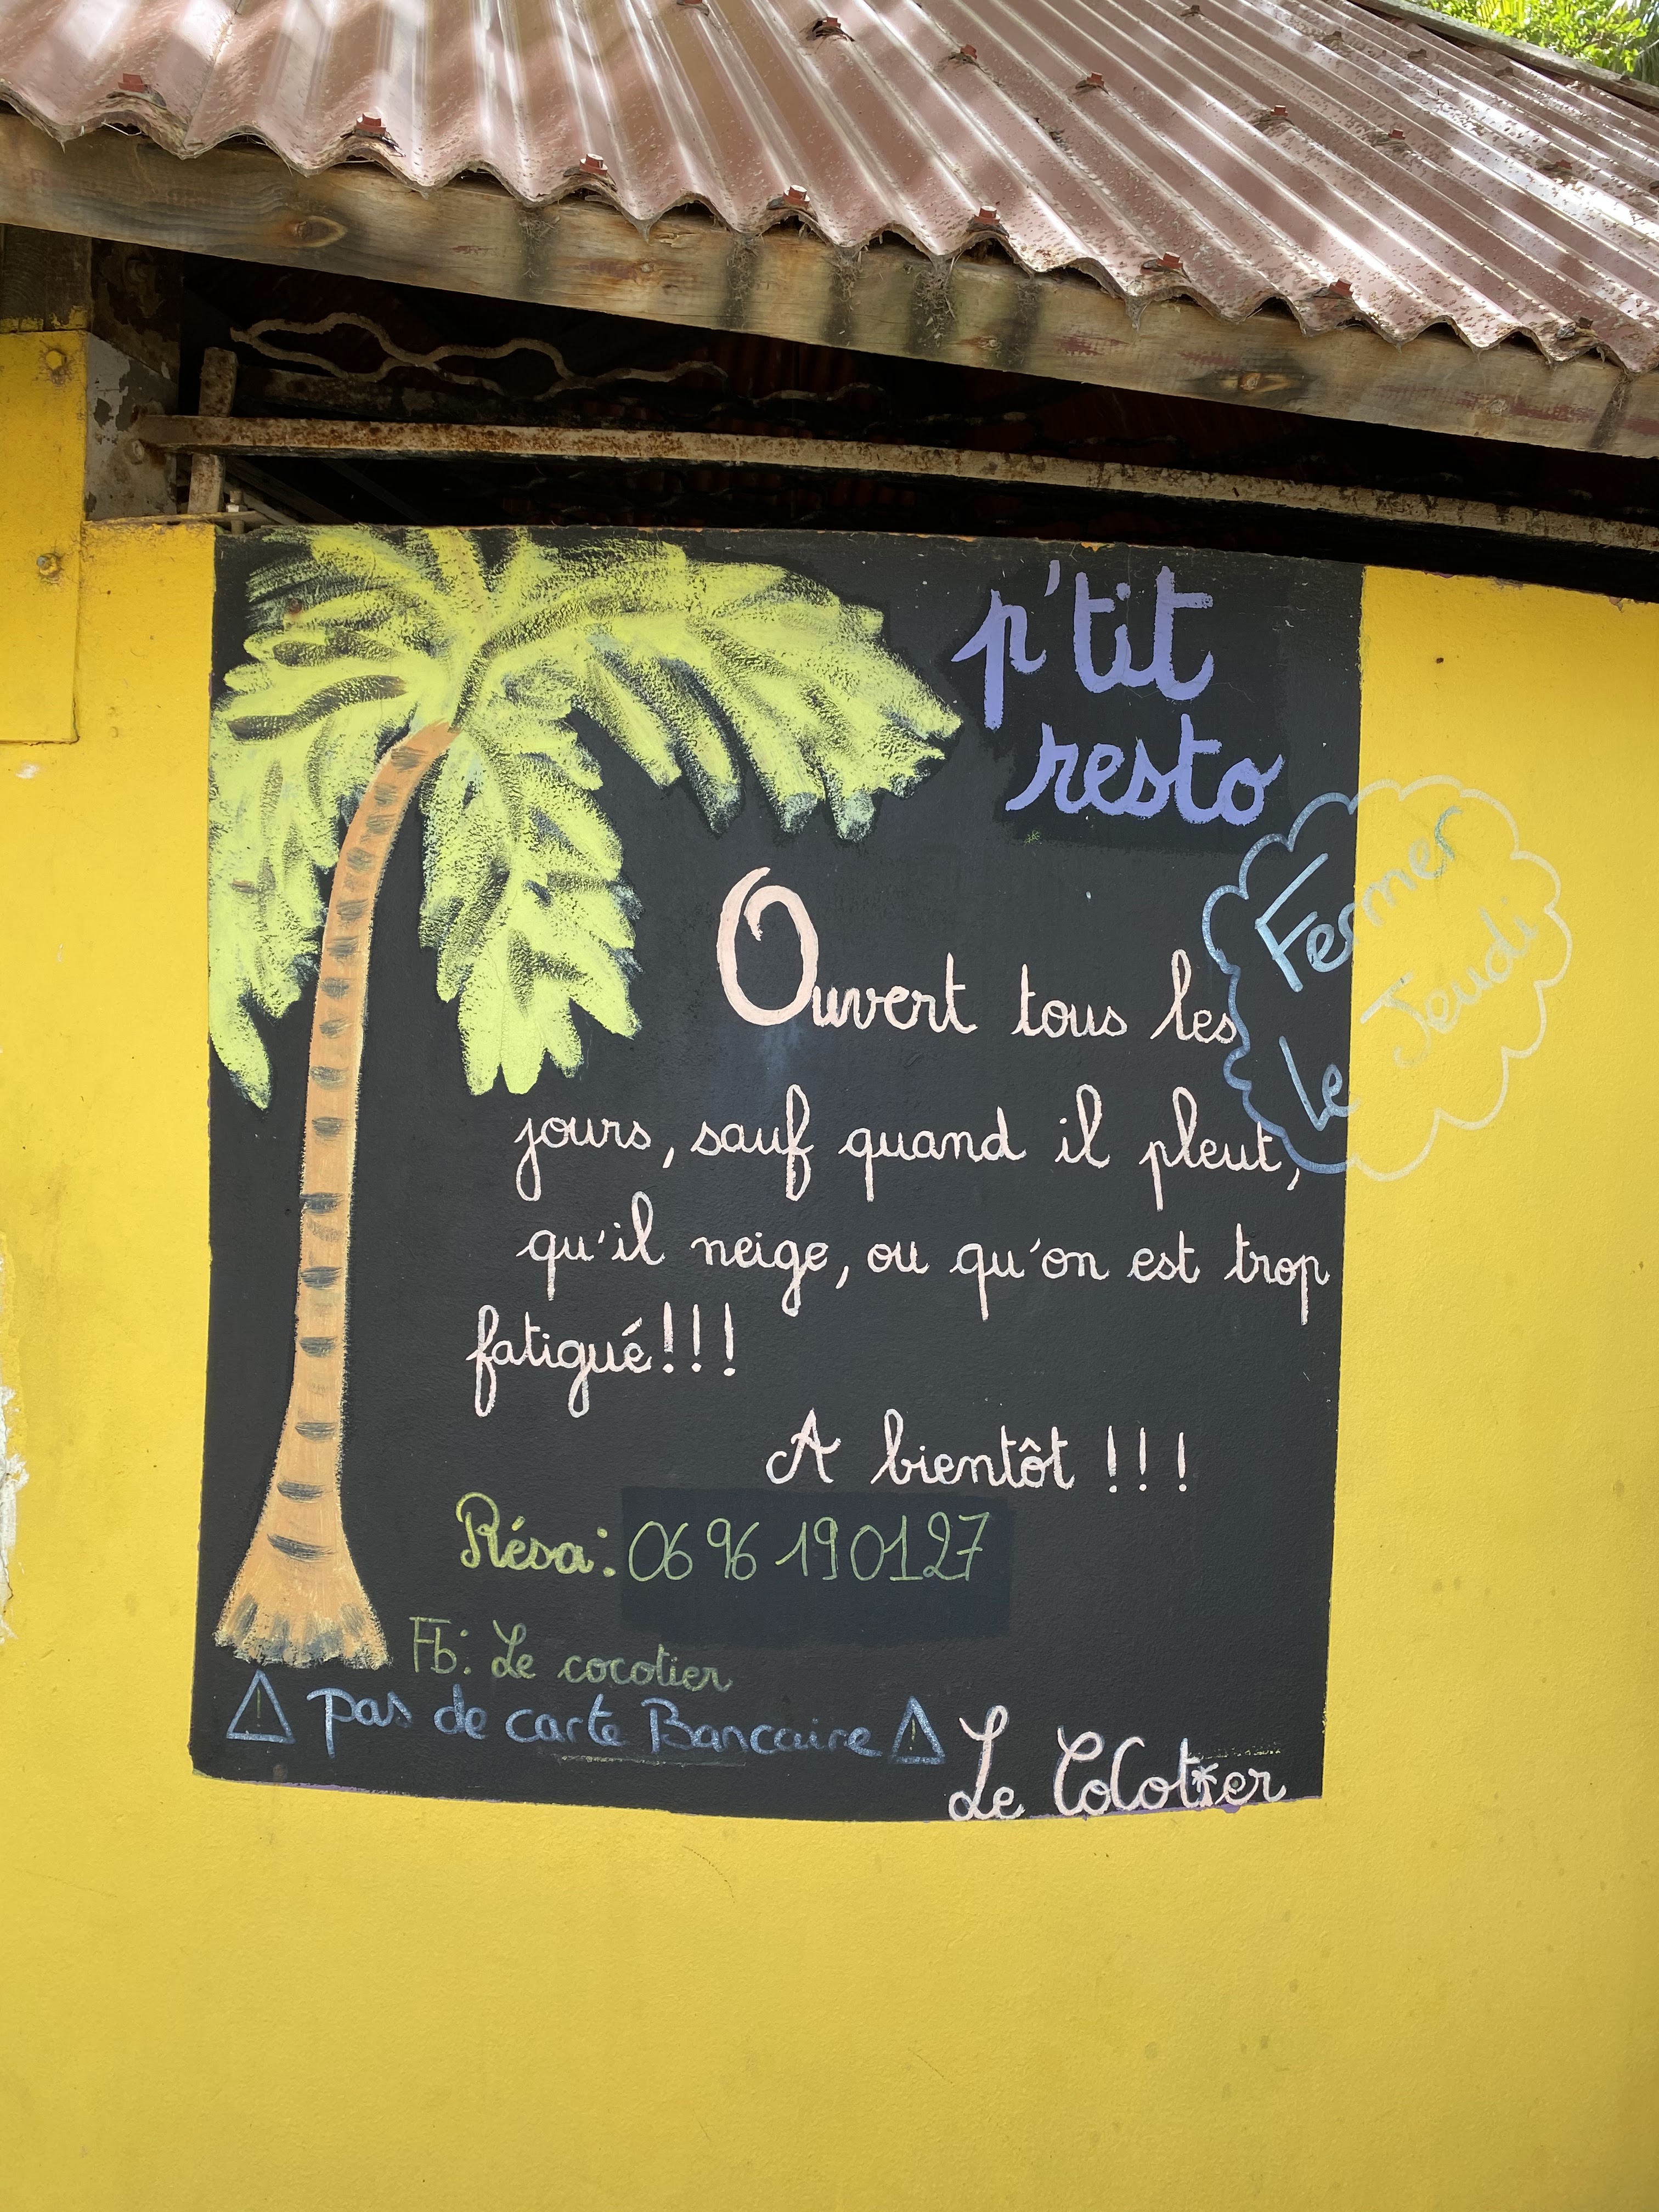 p'tit
resto
Fermer
Le Jeudi
Ouvert tous les
jours, sauf quand il pleut,
qu'il neige, ou qu'on est trop
fatigué!!!
A bientôt !!!
Résa: 06 96 19 01 27
Fb: Le cocotier
⚠ pas de carte Bancaire ⚠
Le CoCotier